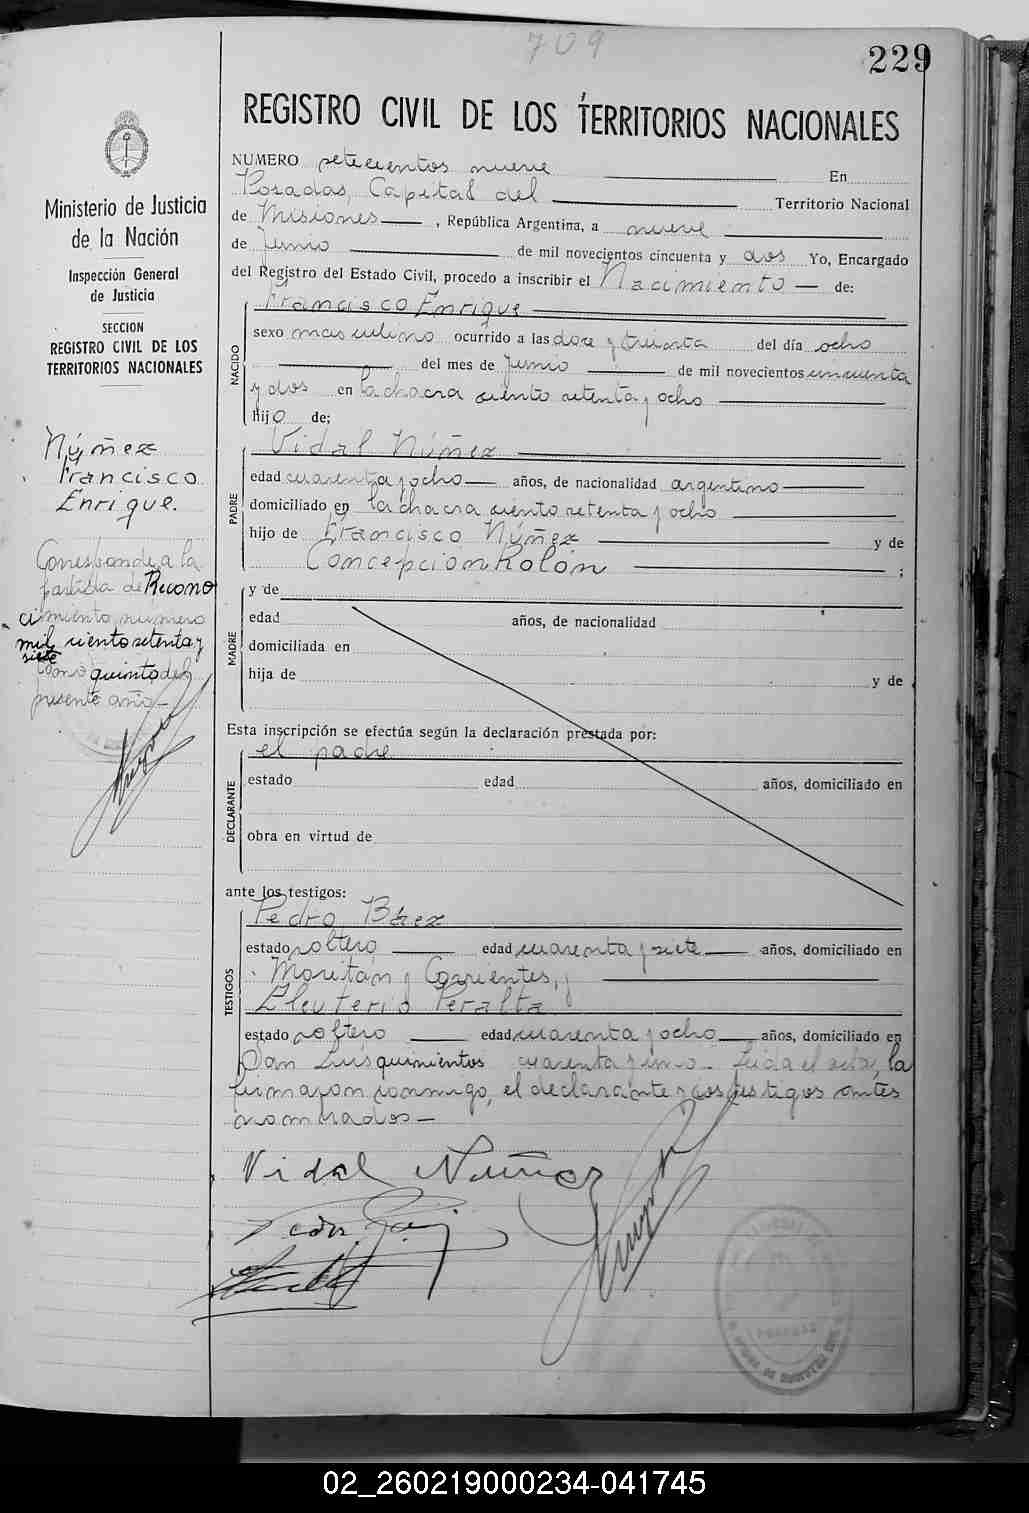 709
229
REGISTRO CIVIL DE LOS TERRITORIOS NACIONALES
NUMERO setecientos nueve En
Posadas, Capital del Territorio Nacional
de Misiones, República Argentina, a nueve
de Junio de mil novecientos cincuenta y dos Yo, Encargado
del Registro del Estado Civil, procedo a inscribir el Nacimiento de:
NACIDO
Francisco Enrique
sexo masculino ocurrido a las doce y treinta del día ocho
del mes de Junio de mil novecientos cincuenta
y dos en la chacra ciento setenta y ocho
hijo de;
PADRE
Vidal Núñez
edad cuarenta y ocho años, de nacionalidad argentino
domiciliado en la chacra ciento setenta y ocho
hijo de Francisco Núñez y de
Concepción Rolón ;
MADRE
y de
edad años, de nacionalidad
domiciliada en
hija de y de
Esta inscripción se efectúa según la declaración prestada por:
DECLARANTE
el padre
estado edad años, domiciliado en
obra en virtud de
ante los testigos:
TESTIGOS
Pedro Báez
estado soltero edad cuarenta y siete años, domiciliado en
Moritan y Corrientes, y
Eleuterio Peralta
estado soltero edad cuarenta y ocho años, domiciliado en
San Luis quinientos cuarenta y uno. Leida el acta, la
firmaron conmigo, el declarante y los testigos antes
nombrados
Vidal Nuñez
Ministerio de Justicia
de la Nación
Inspección General
de Justicia
SECCION
REGISTRO CIVIL DE LOS
TERRITORIOS NACIONALES
Núñez
Francisco
Enrique.
Corresponde a la
partida de Recono
cimiento número
mil ciento setenta y
siete
tomo quinto del
presente año
POSADAS
02_260219000234-041745